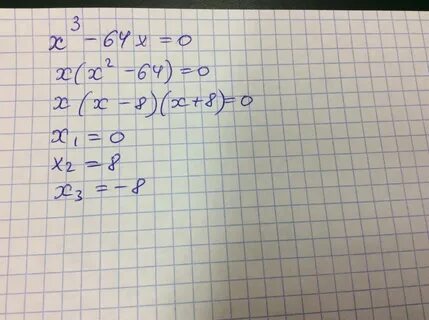 x³ - 64x = 0
x(x² - 64) = 0
x(x - 8)(x + 8) = 0
x₁ = 0
x₂ = 8
x₃ = -8